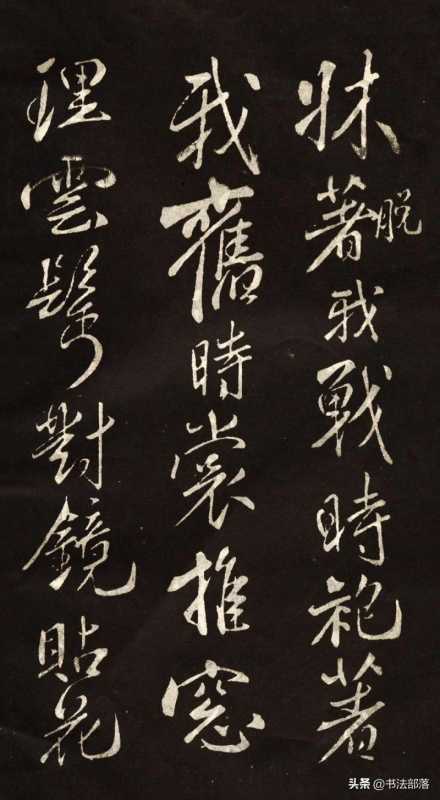 牀著脱我戰時袍著
我舊時裳推窓
理雲鬢對鏡貼花
头条 @书法部落